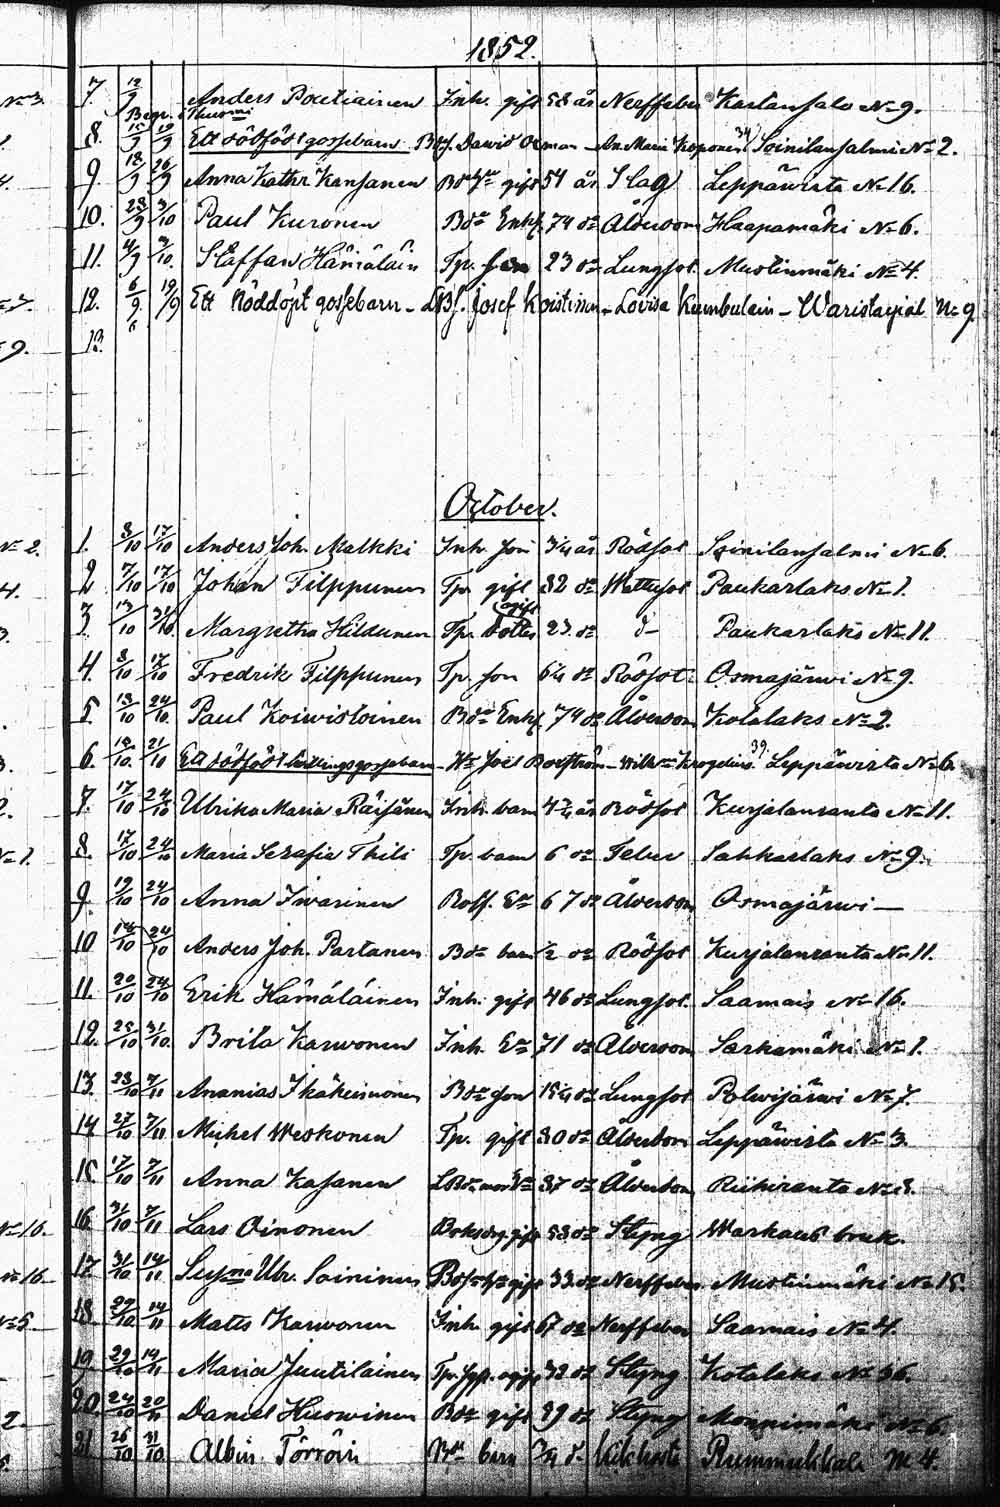 1852.
7. 12/9 Anders Poutiainen Inh. gift 58 år Nerffeber Kartansalo No 9.
Begr. Thuomi
8. 15/9 19/9 Ett dödfödt gossebarn Bdsf. Dawid - An. Maria Koponen 34 Soinilansalmi No 2.
9. 18/9 26/9 Anna Kathr Kansanen gift 54 år Slag Leppäwirta No 16.
10. 28/9 3/10 Paul Kuronen Bde Enkl. 74 de Ålderdom Haapamäki No 6.
11. 4/9 3/10. Staffan Hämäläin Tp. son 23 de Lungsot Mustinmäki No 4.
12. 6/9 19/9 Ett Nöddöpt gossebarn - Josef Koistinen - Lovisa - No 9
13.
October.
1. 8/10 17/10 Anders Joh. Malkki Inh. son 3/4 år Rödsot Soinilansalmi No 6.
2 7/10 17/10 Johan Filppunen Tp. gift 32 de Wattusot Paukarlaks No 1.
3. 13/10 31/10 Margretha Hildunen Tp. dotter ogift 23 de d- Paukarlaks No 11
4. 8/10 17/10 Fredrik Filppunen Tp. son 6 1/4 de Rödsot Osmajärwi No 9.
5. 13/10 24/10. Paul Koiwistoinen Bde Enkl. 74 de Ålderdom Kotalaks No 2.
6. 18/10. 21/10 Ett dödfödt gossebarn Joel - 39. Leppäwirta No 6.
7. 17/10 24/10 Ulrika Maria Räisänen Inh. barn år Rödsot Kurjalanranta No 11.
8. 17/10 24/10 Maria Serafia Thili Tp. barn 6 de Feber Sahkarlaks No 9.
9. 19/10 24/10 Anna Iivarinen Rotf. Ea 67 de Ålderdom Osmajärwi -
10 14/10 24/10 Anders Joh. Partanen Bde barn 1/2 de Rödsot Kurjalanranta No 11.
11. 20/10 24/10 Erik Hämäläinen Inh. gift 46 de Lungsot. Saamais No 16.
12. 25/10 31/10. Brita Karwonen Inh. Ea 71 de Ålderdom Sarkamäki No 1.
13. 23/10 7/11 Ananias Ikäheimonen Bde son de Lungsot Polwijärwi No 7.
14 27/10 7/11 Michel Weskonen Tp. gift 30 de Ålderdom Leppäwirta No 3.
15. 17/10 7/11 Anna Kasanen 37 de Ålderdom Riihiranta No 3.
16. 31/10 7/11 Lars Oinonen gift 53 de Styng Warkaus bruk.
17. 31/10 14/11 Ulr. Soininen gift 33 de Nerffeber Mustinmäki No 15.
18. 29/10 14/11 Matts Karwonen Inh. gift 67 de Nerffeber Saamais No 4.
19 29/10 14/11 Maria Juutilainen Tp. ogift 32 de Styng Kotalaks No 36.
20. 24/10 20/11 Daniel Huowinen Bde gift 39 de Styng Moinimäki No 6.
21 25/10 31/10. Albin Törröin Bde barn 3/4 d. Kikhosta Rummukkala No 4.